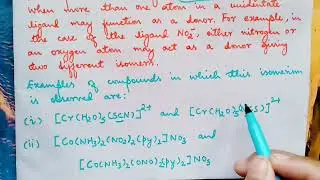 When more than one atom in a unidentate
ligand may function as a donor. For example, in
the case of the ligand NO₂⁻, either nitrogen or
an oxygen atom may act as a donor giving
two different isomers.
Examples of compounds in which this isomerism
is observed are:
(i) [Cr(H₂O)₅(SCN)]²⁺ and [Cr(H₂O)₅ S)]²⁺
(ii) [Co(NH₃)₂(NO₂)₂(py)₂]NO₃ and
[Co(NH₃)₂(ONO)₂(py)₂]NO₃